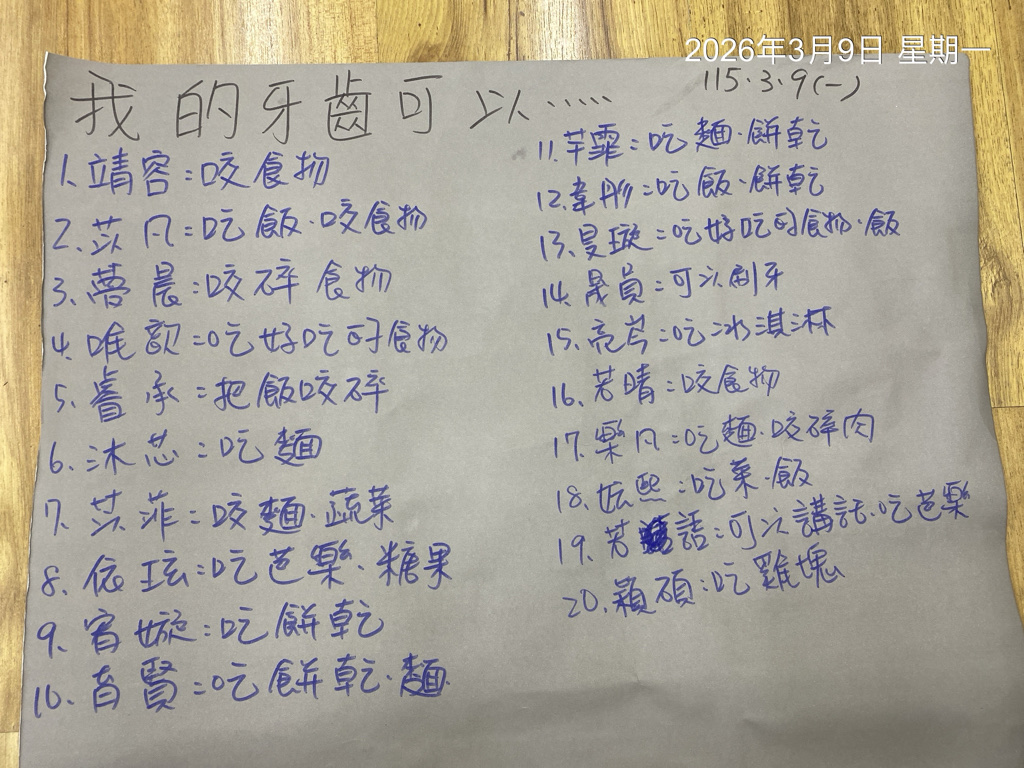 2026年3月9日 星期一
115.3.9(一)
我的牙齒可以.....
1. 靖容:咬食物
2. 苡凡:吃飯.咬食物
3. 蕎晨:咬碎食物
4. 唯歆:吃好吃的食物
5. 睿承:把飯咬碎
6. 沐芯:吃麵
7. 苡菲:咬麵.蔬菜
8. 依玹:吃芭樂.糖果
9. 宥嫙:吃餅乾
10. 育賢:吃餅乾.麵
11. 芊霏:吃麵.餅乾
12. 韋彤:吃飯.餅乾
13. 旻璇:吃好吃的食物.飯
14. 晟員:可以刷牙
15. 亮岑:吃冰淇淋
16. 若晴:咬食物
17. 樂凡:吃麵.咬碎肉
18. 妘熙:吃菜.飯
19. 若語:可以講話.吃芭樂
20. 顥碩:吃雞塊